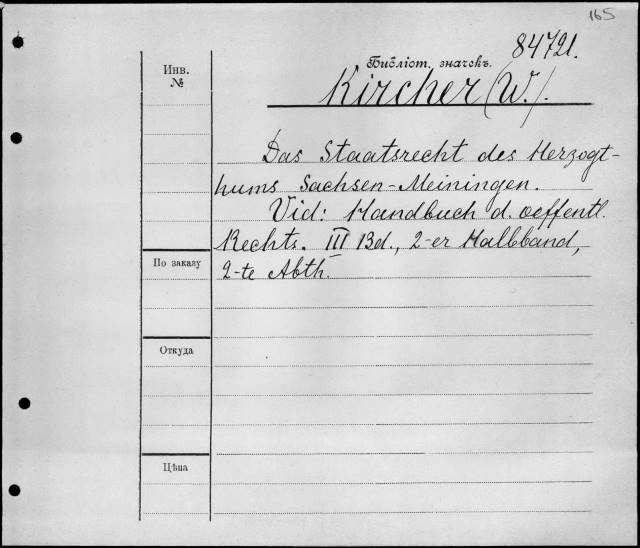 165
84721.
Библіот. значекъ.
Инв.
№
Kircher (W.).
Das Staatsrecht des Herzogt-
hums Sachsen-Meiningen.
Vid: Handbuch d. oeffentl.
Rechts. III Bd., 2-er Halbband,
2-te Abth.
По заказу
Откуда
Цѣна